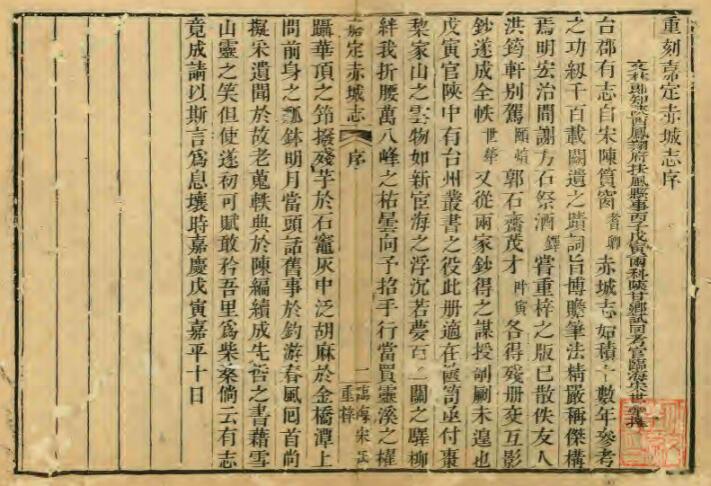 重刻嘉定赤城志序
文林郎知陝西鳳翔府扶風縣事丙子戊寅兩科陝甘鄉試同考官臨海宋世犖撰
台郡有志自宋陳篔窗耆卿赤城志始積十數年參考
之功綴千百載闕遺之蹟詞旨博贍筆法精嚴稱傑構
焉明宏治間謝方石祭酒鐸嘗重梓之版已散佚友人
洪筠軒別駕頤煊郭石齋茂才叶寅各得殘册交互影
鈔遂成全帙世犖又從兩家鈔得之謀授剞劂未遑也
戊寅官陝中有台州叢書之役此册適在匧笥亟付棗
棃家山之雲物如新宦海之浮沉若夢百二關之驛柳
絆我折腰萬八峰之枯曇向予招手行當買靈溪之櫂
嘉定赤城志 序 一 臨海宋氏重梓
躡華頂之笻撥殘芋於石竈灰中泛胡麻於金橋潭上
問前身之瓢鉢明月當頭話舊事於釣游春風回首尙
擬采遺聞於故老蒐軼典於陳編續成先哲之書藉雪
山靈之笑但使遂初可賦敢矜吾里爲柴桑倘云有志
竟成請以斯言爲息壤時嘉慶戊寅嘉平十日